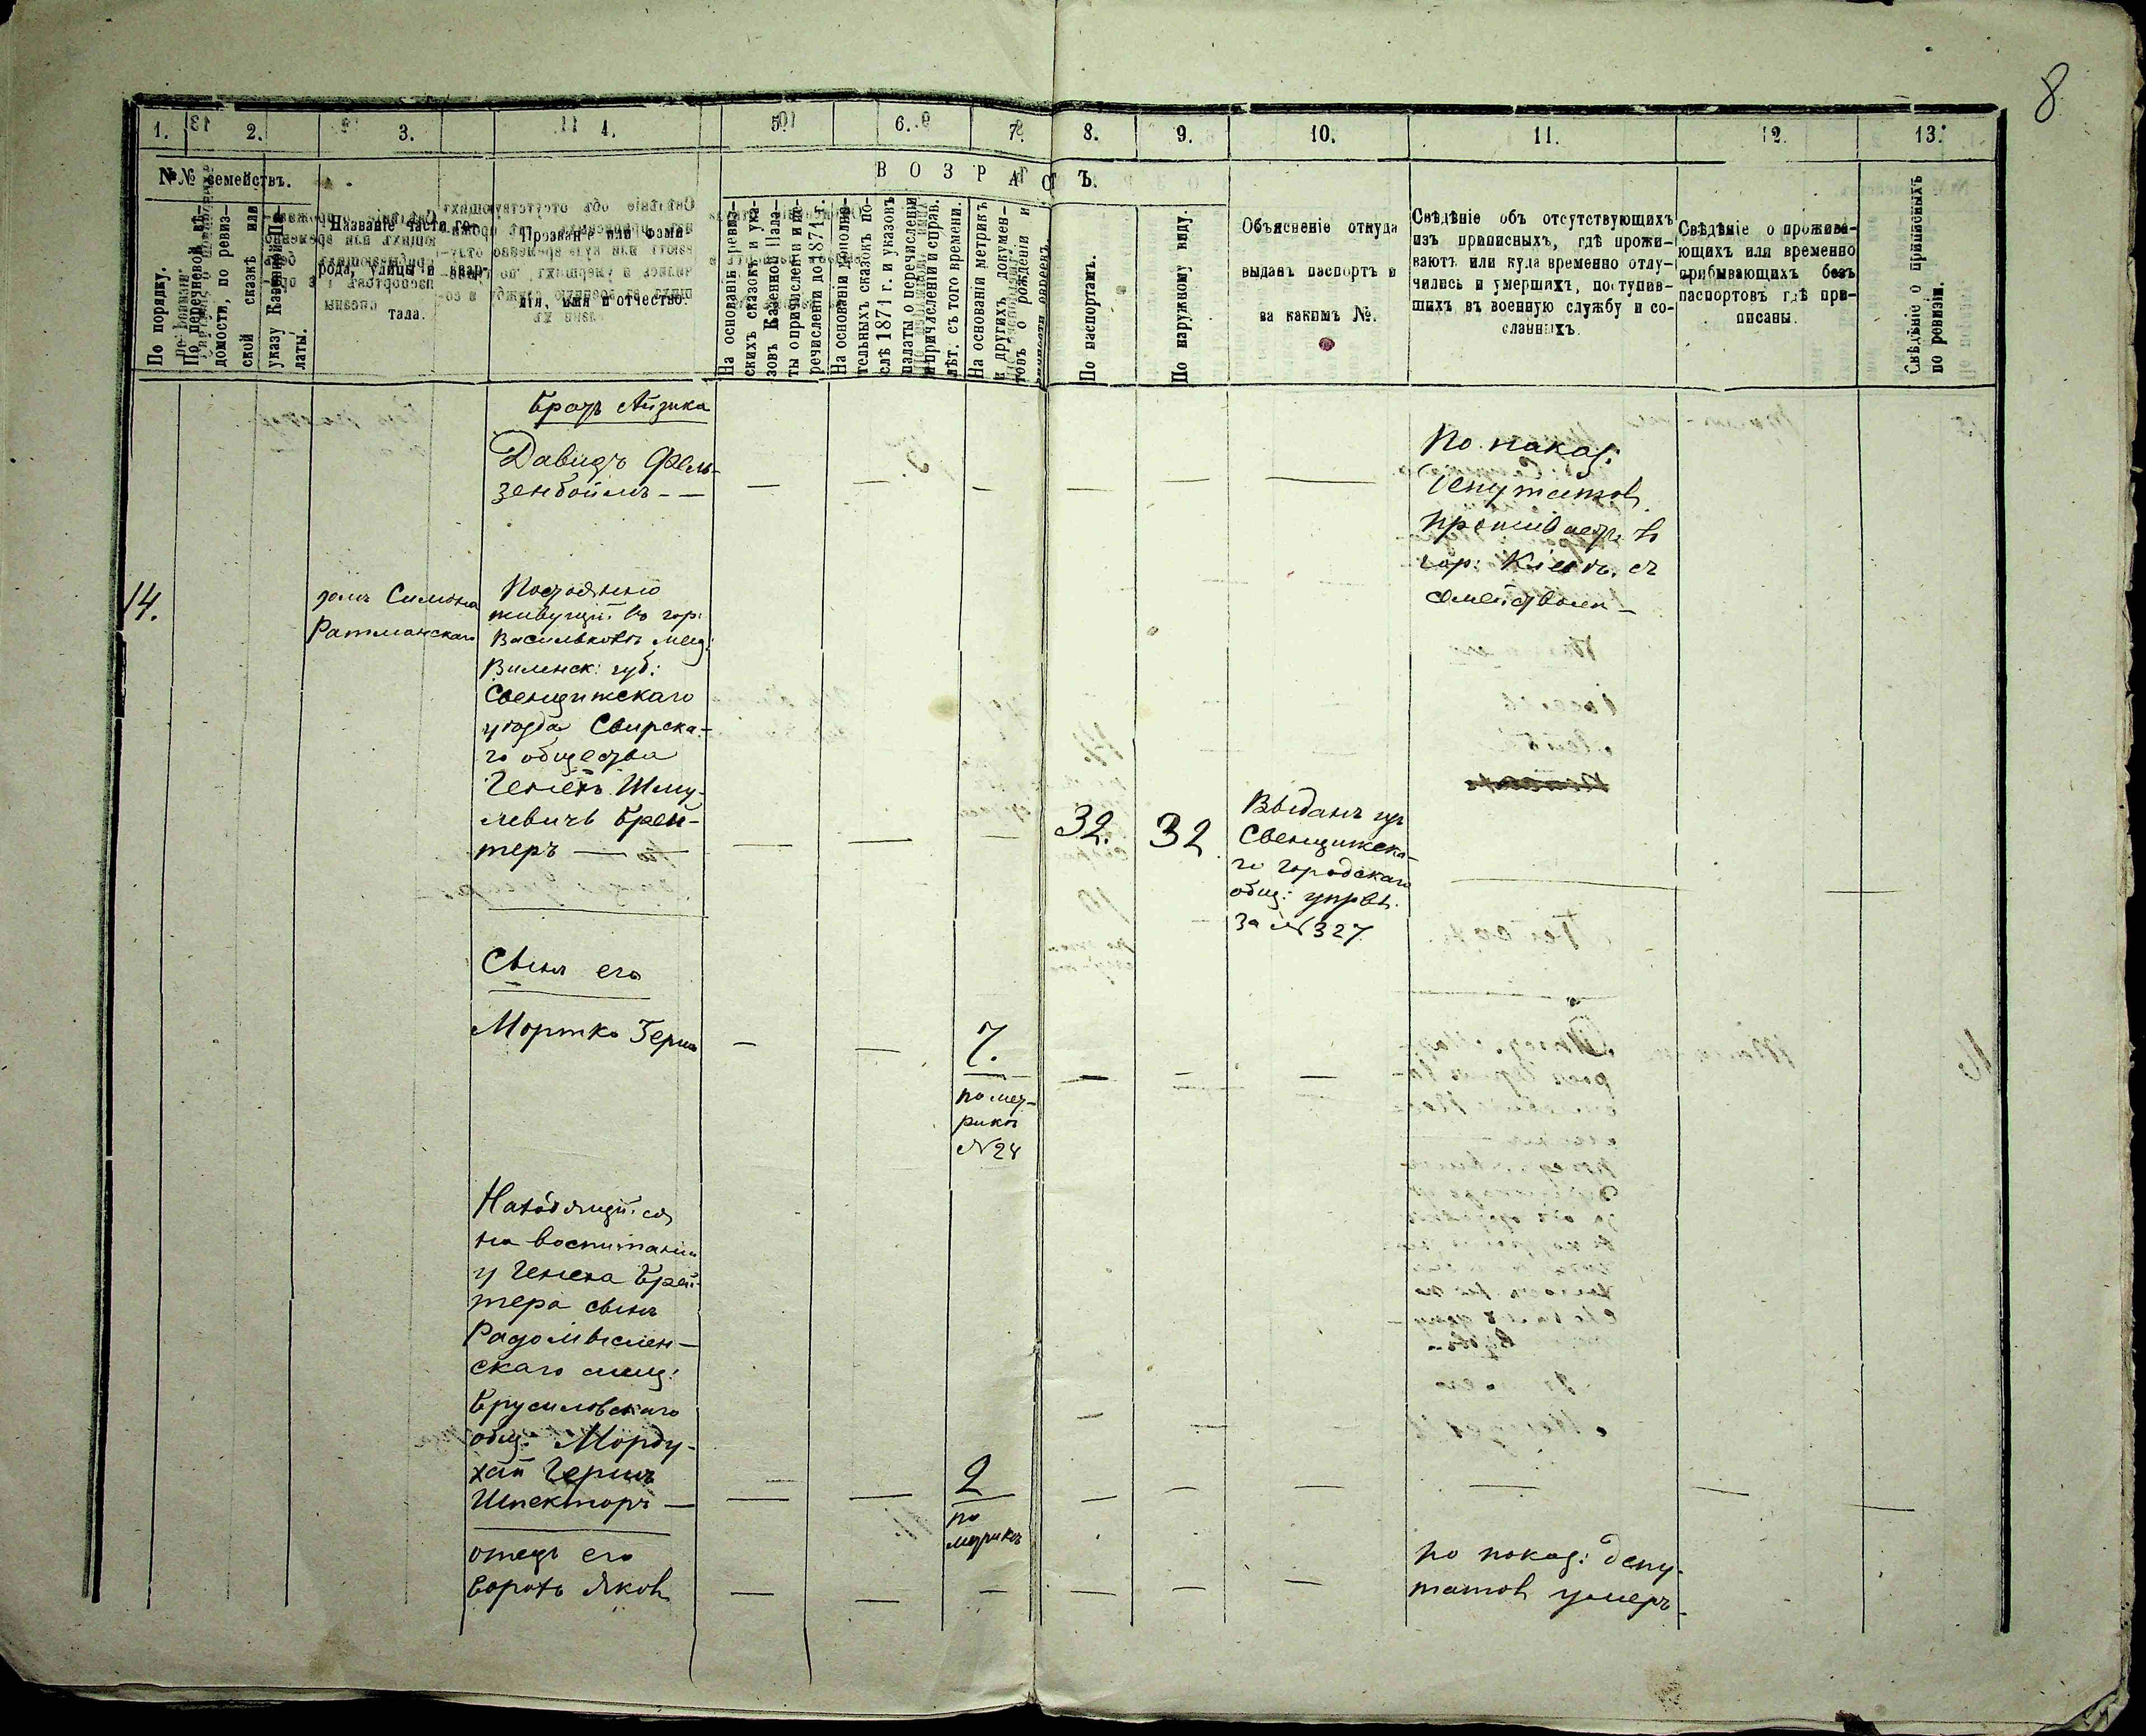 8
1. 2. 3. 4. 5. 6. 7. 8. 9. 10. 11. 12. 13.
№№ семействъ.
ВОЗРАСТЪ.
По порядку.
По перечневой вѣ-
домости, по ревиз-
ской сказкѣ или
указу Казенной Па-
латы.
Названіе части го-
рода, улицы и квар-
тала.
Прозваніе или фами-
лія, имя и отчество.
На основаніи ревиз-
скихъ сказокъ и ука-
зовъ Казенной Пала-
ты о причисленіи и пе-
речисленіи до 1871 г.
На основаніи дополни-
тельныхъ сказокъ по-
слѣ 1871 г. и указовъ
палаты о перечисленіи
и причисленіи и справ.
лѣт. съ того времени.
На основаніи метрикъ
и другихъ докумен-
товъ о рожденіи и
По паспортамъ.
По наружному виду.
Объясненіе откуда
выданъ паспортъ и
за какимъ №.
Свѣдѣніе объ отсутствующихъ
изъ приписныхъ, гдѣ прожи-
ваютъ или куда временно отлу-
чились и умершихъ, поступив-
шихъ въ военную службу и со-
сланныхъ.
Свѣдѣніе о прожива-
ющихъ или временно
прибывающихъ безъ
паспортовъ гдѣ при-
писаны.
Свѣдѣніе о приписныхъ
по ревизіи.
Братъ Айзика
Давидъ Фель-
зенбоймъ - -
По показ:
депутатовъ
проживаетъ въ
гор: Кіевѣ. съ
семействомъ -
14.
домъ Симона
Ратманскаго
Постоянно
живущій въ гор:
Васильковѣ мещ:
Виленск: губ:
Свенцянскаго
уѣзда Свирска-
го общества
Генехъ Шму-
левичъ Брей-
теръ —
32.
32
Выданъ изъ
Свенцянска-
го городскаго
общ: управ.
за № 327
Сынъ его
Мортко Гершъ
7.
по мет-
рикѣ
№ 24
Находящійся
на воспитаніи
у Генеха Брей-
тера сынъ
Радомысльен-
скаго мещ:
Брусиловскаго
общ: Морду-
хай Гершъ
Шпекторъ —
2
по
метрикѣ
отецъ его
Борохъ Яковъ
по показ: депу-
татовъ умеръ -